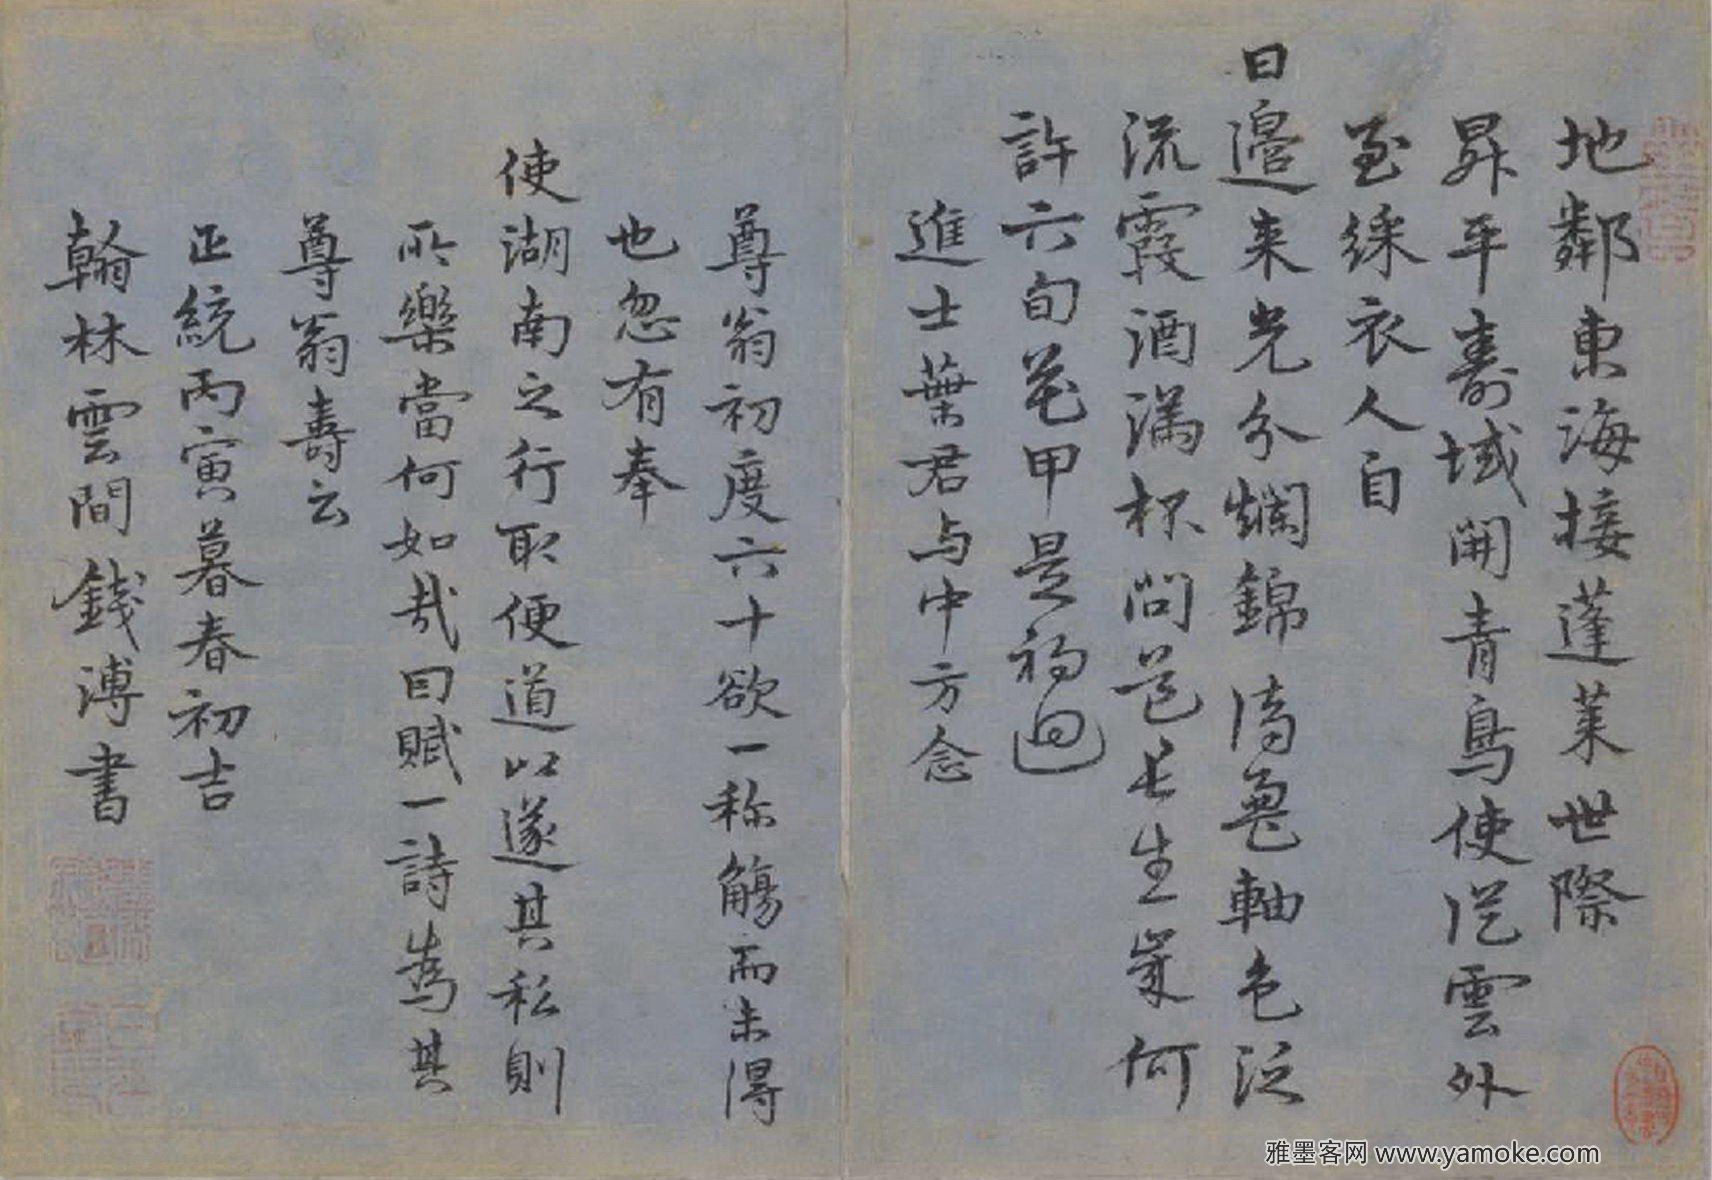 地鄰東海接蓬萊世際
昇平壽域開青鳥使從雲外
至綵衣人自
日邊来光分爛錦濤鳧軸色泛
流霞酒滿杯問道長生歲何
許六旬花甲是初迴
進士葉君与中方念
尊翁初度六十欲一称觴而未得
也忽有奉
使湖南之行取便道以遂其私則
所樂當何如哉因賦一詩為其
尊翁壽云
正統丙寅暮春初吉
翰林雲間錢溥書
雅墨客网 www.yamoke.com